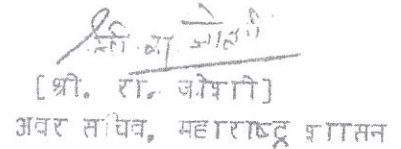 [श्री. रा. जोशी]
अवर सचिव, महाराष्ट्र शासन